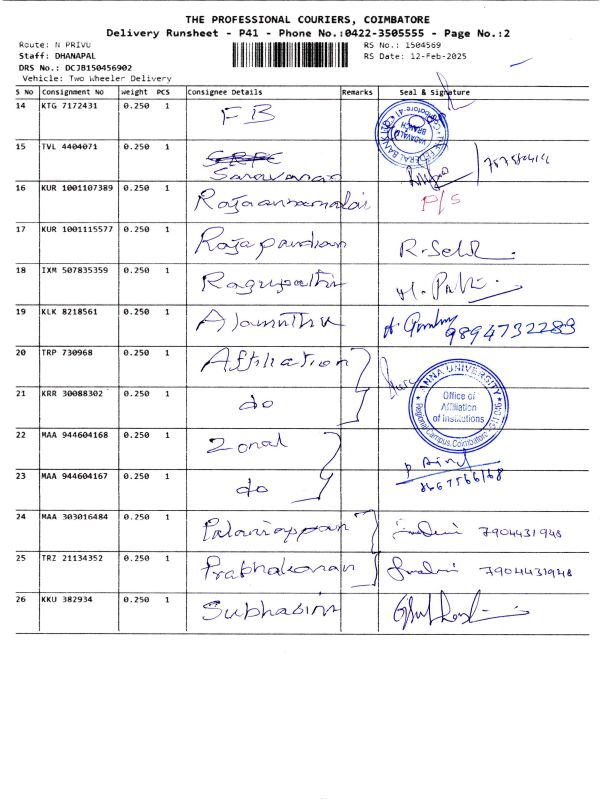 THE PROFESSIONAL COURIERS, COIMBATORE
Delivery Runsheet - P41 - Phone No.:0422-3505555 - Page No.:2
Route: N PRIVU RS No.: 1504569
Staff: DHANAPAL RS Date: 12-Feb-2025
DRS No.: DCJB150456902
Vehicle: Two Wheeler Delivery
S No Consignment No Weight PCS Consignee Details Remarks Seal & Signature
14 KTG 7172431 0.250 1 FB
THE FEDERAL BANK VADAVALLI BRANCH
15 TVL 4404071 0.250 1 Saravanan
16 KUR 1001107389 0.250 1 Rajaannamalai P/S
17 KUR 1001115577 0.250 1 Rajapandian
18 IXM 507835359 0.250 1 Ragupathi
19 KLK 8218561 0.250 1 Alamuthu 9894732283
20 TRP 730968 0.250 1 Affiliation
21 KRR 30088302 0.250 1 do
ANNA UNIVERSITY
Office of
Affiliation
of Institutions
Regional Campus, Coimbatore
22 MAA 944604168 0.250 1 Zonal
23 MAA 944604167 0.250 1 do
24 MAA 303016484 0.250 1 Palaniappan 7904431948
25 TRZ 21134352 0.250 1 Prabhakaran 7904431948
26 KKU 382934 0.250 1 Subhasini